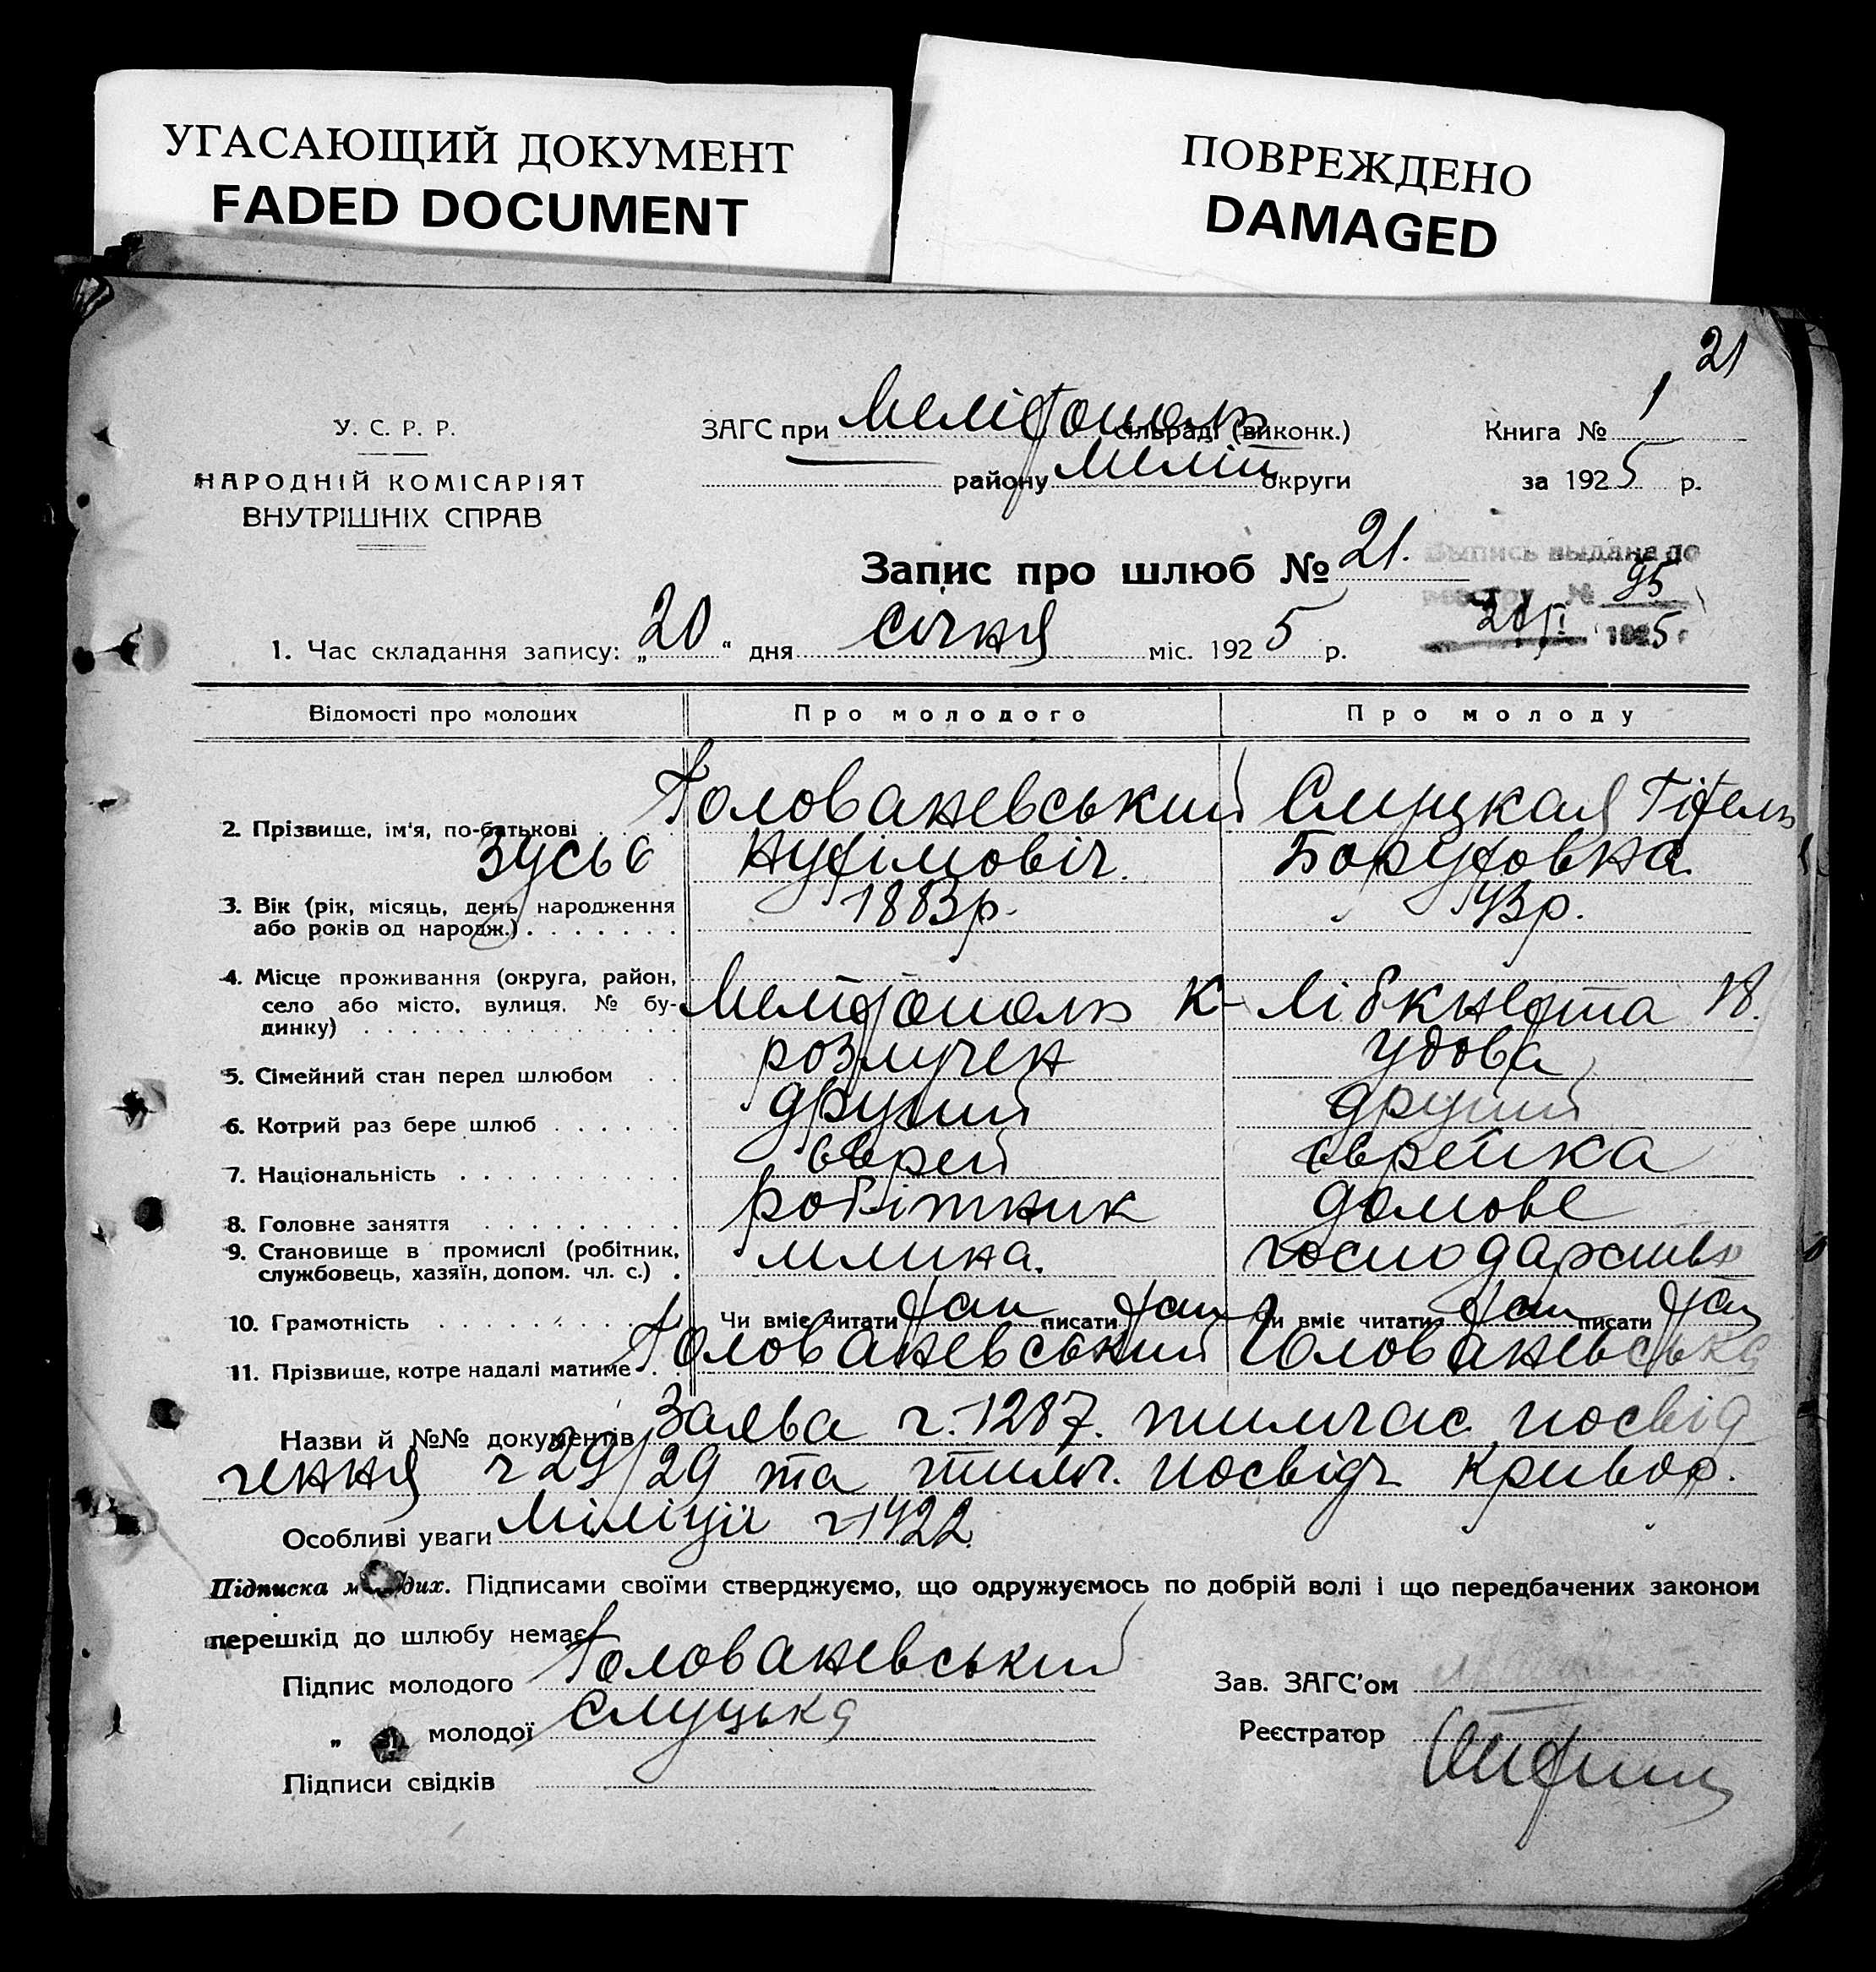 УГАСАЮЩИЙ ДОКУМЕНТ
FADED DOCUMENT
ПОВРЕЖДЕНО
DAMAGED
21
У. С. Р. Р.
НАРОДНІЙ КОМІСАРІЯТ
ВНУТРІШНІХ СПРАВ
ЗАГС при Мелітополь сільраді (виконк.)
району Меліт округи
Книга № 1
за 1925 р.
Запис про шлюб № 21.
Выпись выдана по
реестру № 95
20/I 1925 г
1. Час складання запису: „20" дня січня міс. 1925 р.
Відомості про молодих Про молодого Про молоду
2. Прізвище, ім'я, по-батькові Голованевський Слуцкая Гітель
Зусь Нухімовіч. Боруховна
3. Вік (рік, місяць, день народження або років од народж.) 1883р. 43р.
4. Місце проживання (округа, район, село або місто, вулиця, № будинку) Мелітополь К-Лібкнехта 18.
5. Сімейний стан перед шлюбом розлучен удова
6. Котрий раз бере шлюб другий другий
7. Національність єврей єврейка
8. Головне заняття робітник домове
9. Становище в промислі (робітник, службовець, хазяїн, допом. чл. с.) млина. господарство
10. Грамотність Чи вміє читати так писати так Чи вміє читати так писати так
11. Прізвище, котре надалі матиме Голованевський Голованевська
Назви й №№ документів Заява ч. 1287. тимчас. посвід
чення ч 29/29 та тимч. посвідч Кривор.
Особливі уваги Міліціи ч 1422.
Підписка молодих. Підписами своїми стверджуємо, що одружуємось по добрій волі і що передбачених законом
перешкід до шлюбу немає
Підпис молодого Голованевський
„ молодої Слуцька
Підписи свідків
Зав. ЗАГС'ом
Реєстратор